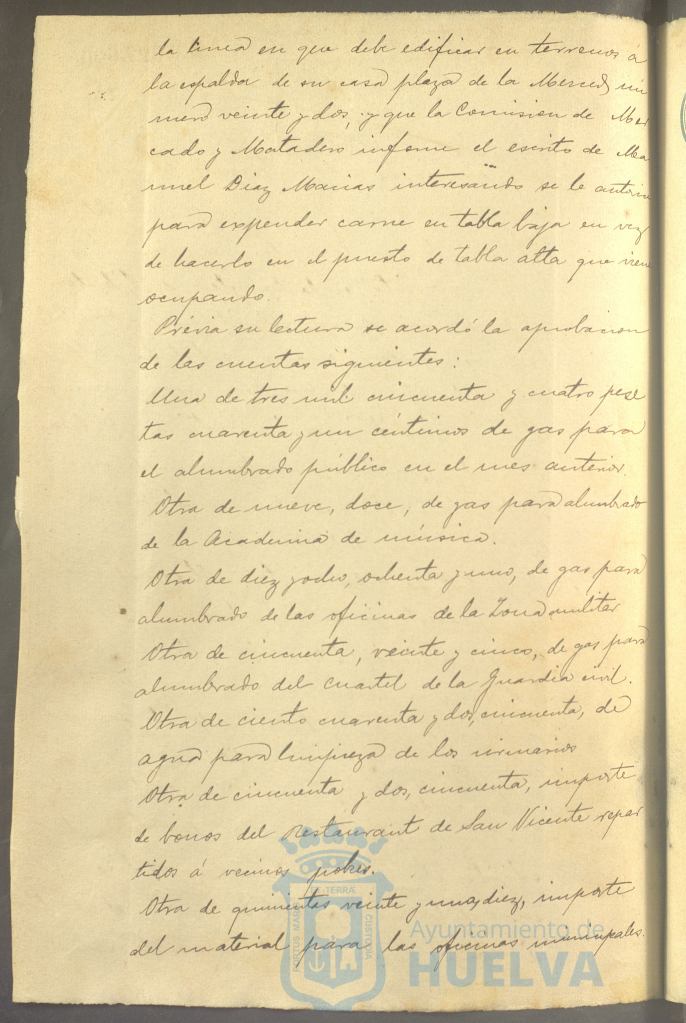 la linea en que debe edificar en terrenos á
la espalda de su casa plaza de la Merced, nú
mero veinte y dos, y que la Comision de Mer
cado y Matadero informe el escrito de Ma
nuel Diaz Macias interesando se le autorice
para expender carne en tabla baja en vez
de hacerlo en el puesto de tabla alta que viene
ocupando.
Prévia su lectura se acordó la aprobacion
de las cuentas siguientes:
Una de tres mil cincuenta y cuatro pese
tas cuarenta y un céntimos de gas para
el alumbrado público en el mes anterior.
Otra de nueve, doce, de gas para alumbrado
de la Academia de música.
Otra de diez y ocho, ochenta y uno, de gas para
alumbrado de las oficinas de la Zona militar
Otra de cincuenta, veinte y cinco, de gas para
alumbrado del cuartel de la Guardia civil.
Otra de ciento cuarenta y dos, cincuenta, de
agua para limpieza de los urinarios
Otra de cincuenta y dos, cincuenta, importe
de bonos del Restaurant de San Vicente repar
tidos á vecinos pobres.
Otra de quinientas veinte y una, diez, importe
del material para las oficinas municipales.
PORTUS MARIS ET TERRÆ CUSTODIA
Ayuntamiento de
HUELVA